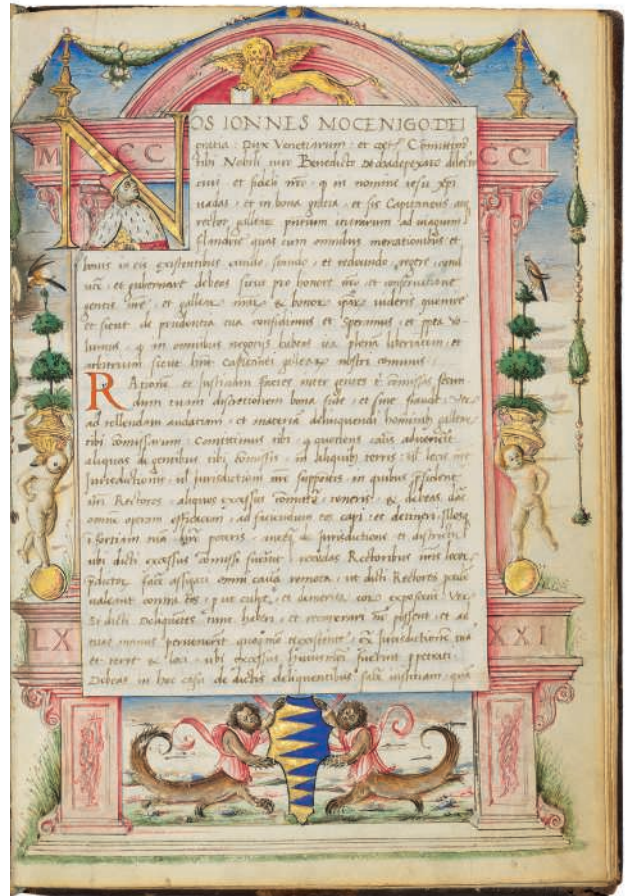 M CCCC
NOS IONNES MOCENIGO DEI
gratia: Dux Venetiarum: et cxƺ Comittimus
tibi Nobili viro Benedicto Dechadepexaro dilecto
civi, et fideli nro, q in nomine iesu xpi
vadas, et in bona gratia, et sis Capitaneus atq
rector galear nrarum iturarum ad viagium
flandrie quas cum omnibus mercationibus et
bonis in eis existentibus, eundo, stando, et redeundo, regere,
et gubernare debeas sicut pro honore nro, et conservatione
gentis nre, et galear nrar, & bonor ipar videris
et sicut de prudentia tua confidimus et Speramus, et ppea vo
lumus, q in omnibus negocijs habeas
arbitrium sicut hnt Capitanei galear nostri comunis:
RAtione, et Justitiam facies inter gentes t comissas secun
dum tuam discretionem bona fide, et sine fraude: Ver
ad tollendam audatiam, et materiam delinquendi hominibus galear
tibi comissarum: Comittimus tibi, q quotiens casus advenerit
aliquos de gentibus tibi comissis, in aliquib terris: ul locis nre
Jurisdictionis, ul jurisdictioni nre suppositis, in quibus pssident
nri Rectores, aliquos excessus, teneris, & debeas dare
omnem operam efficacem, ad faciendum eos capi, et detineri,
ubi dicti excessus comissi fuerint, Rectoribus nris locor
pdictor facere assignari omni causa remota, ut dicti Rectores
valeant contra eos, put culpe, et demerita eor exposcent Ver
Si dicti deliquetes tunc haberi, et non possent, et ad
tuas manus pervenerit extra Jurisdictionem
et terre & loci, ubi excessus fuerint ppetrati
Debeas in hoc casu de dictis deliquentibus facere iustitiam,
LX XXI